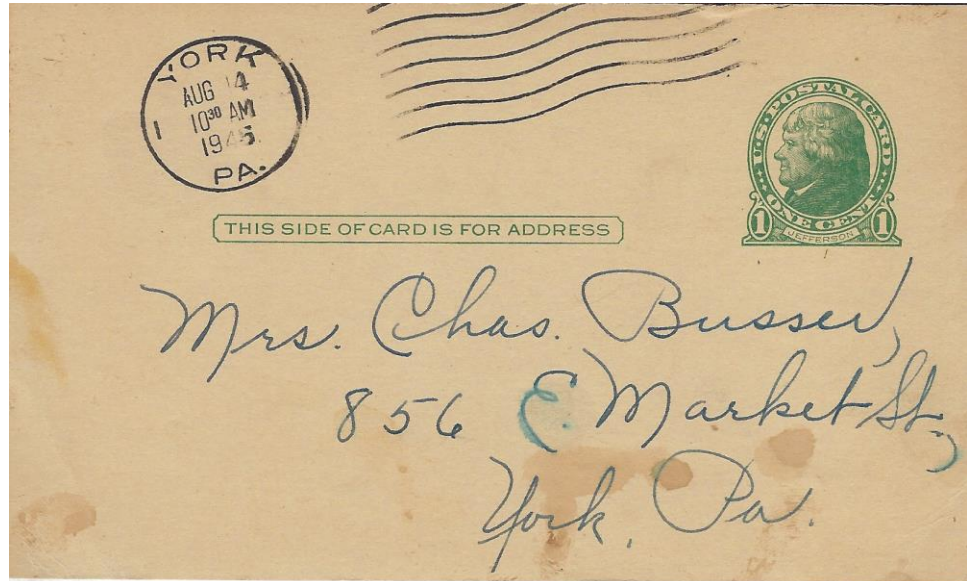 YORK
AUG 14
10 30 AM
1945
1
PA.
U.S. POSTAL CARD
ONE CENT
1 1
JEFFERSON
THIS SIDE OF CARD IS FOR ADDRESS
Mrs. Chas. Busser,
856 E Market St.,
York, Pa.